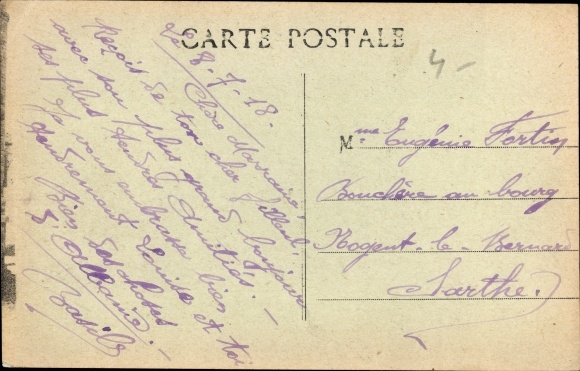 CARTE POSTALE
4 -
Le 8-7-18.
Chère Marraine,
Reçois de ton cher filleul,
avec son plus grand bonjour
ses plus tendres Amitiés. -
Je vous embrasse bien
tendrement Louise et toi
Bien des choses
Mme Eugénie Fortin
Bouchère au bourg
Nogent-le-Bernard
Sarthe.